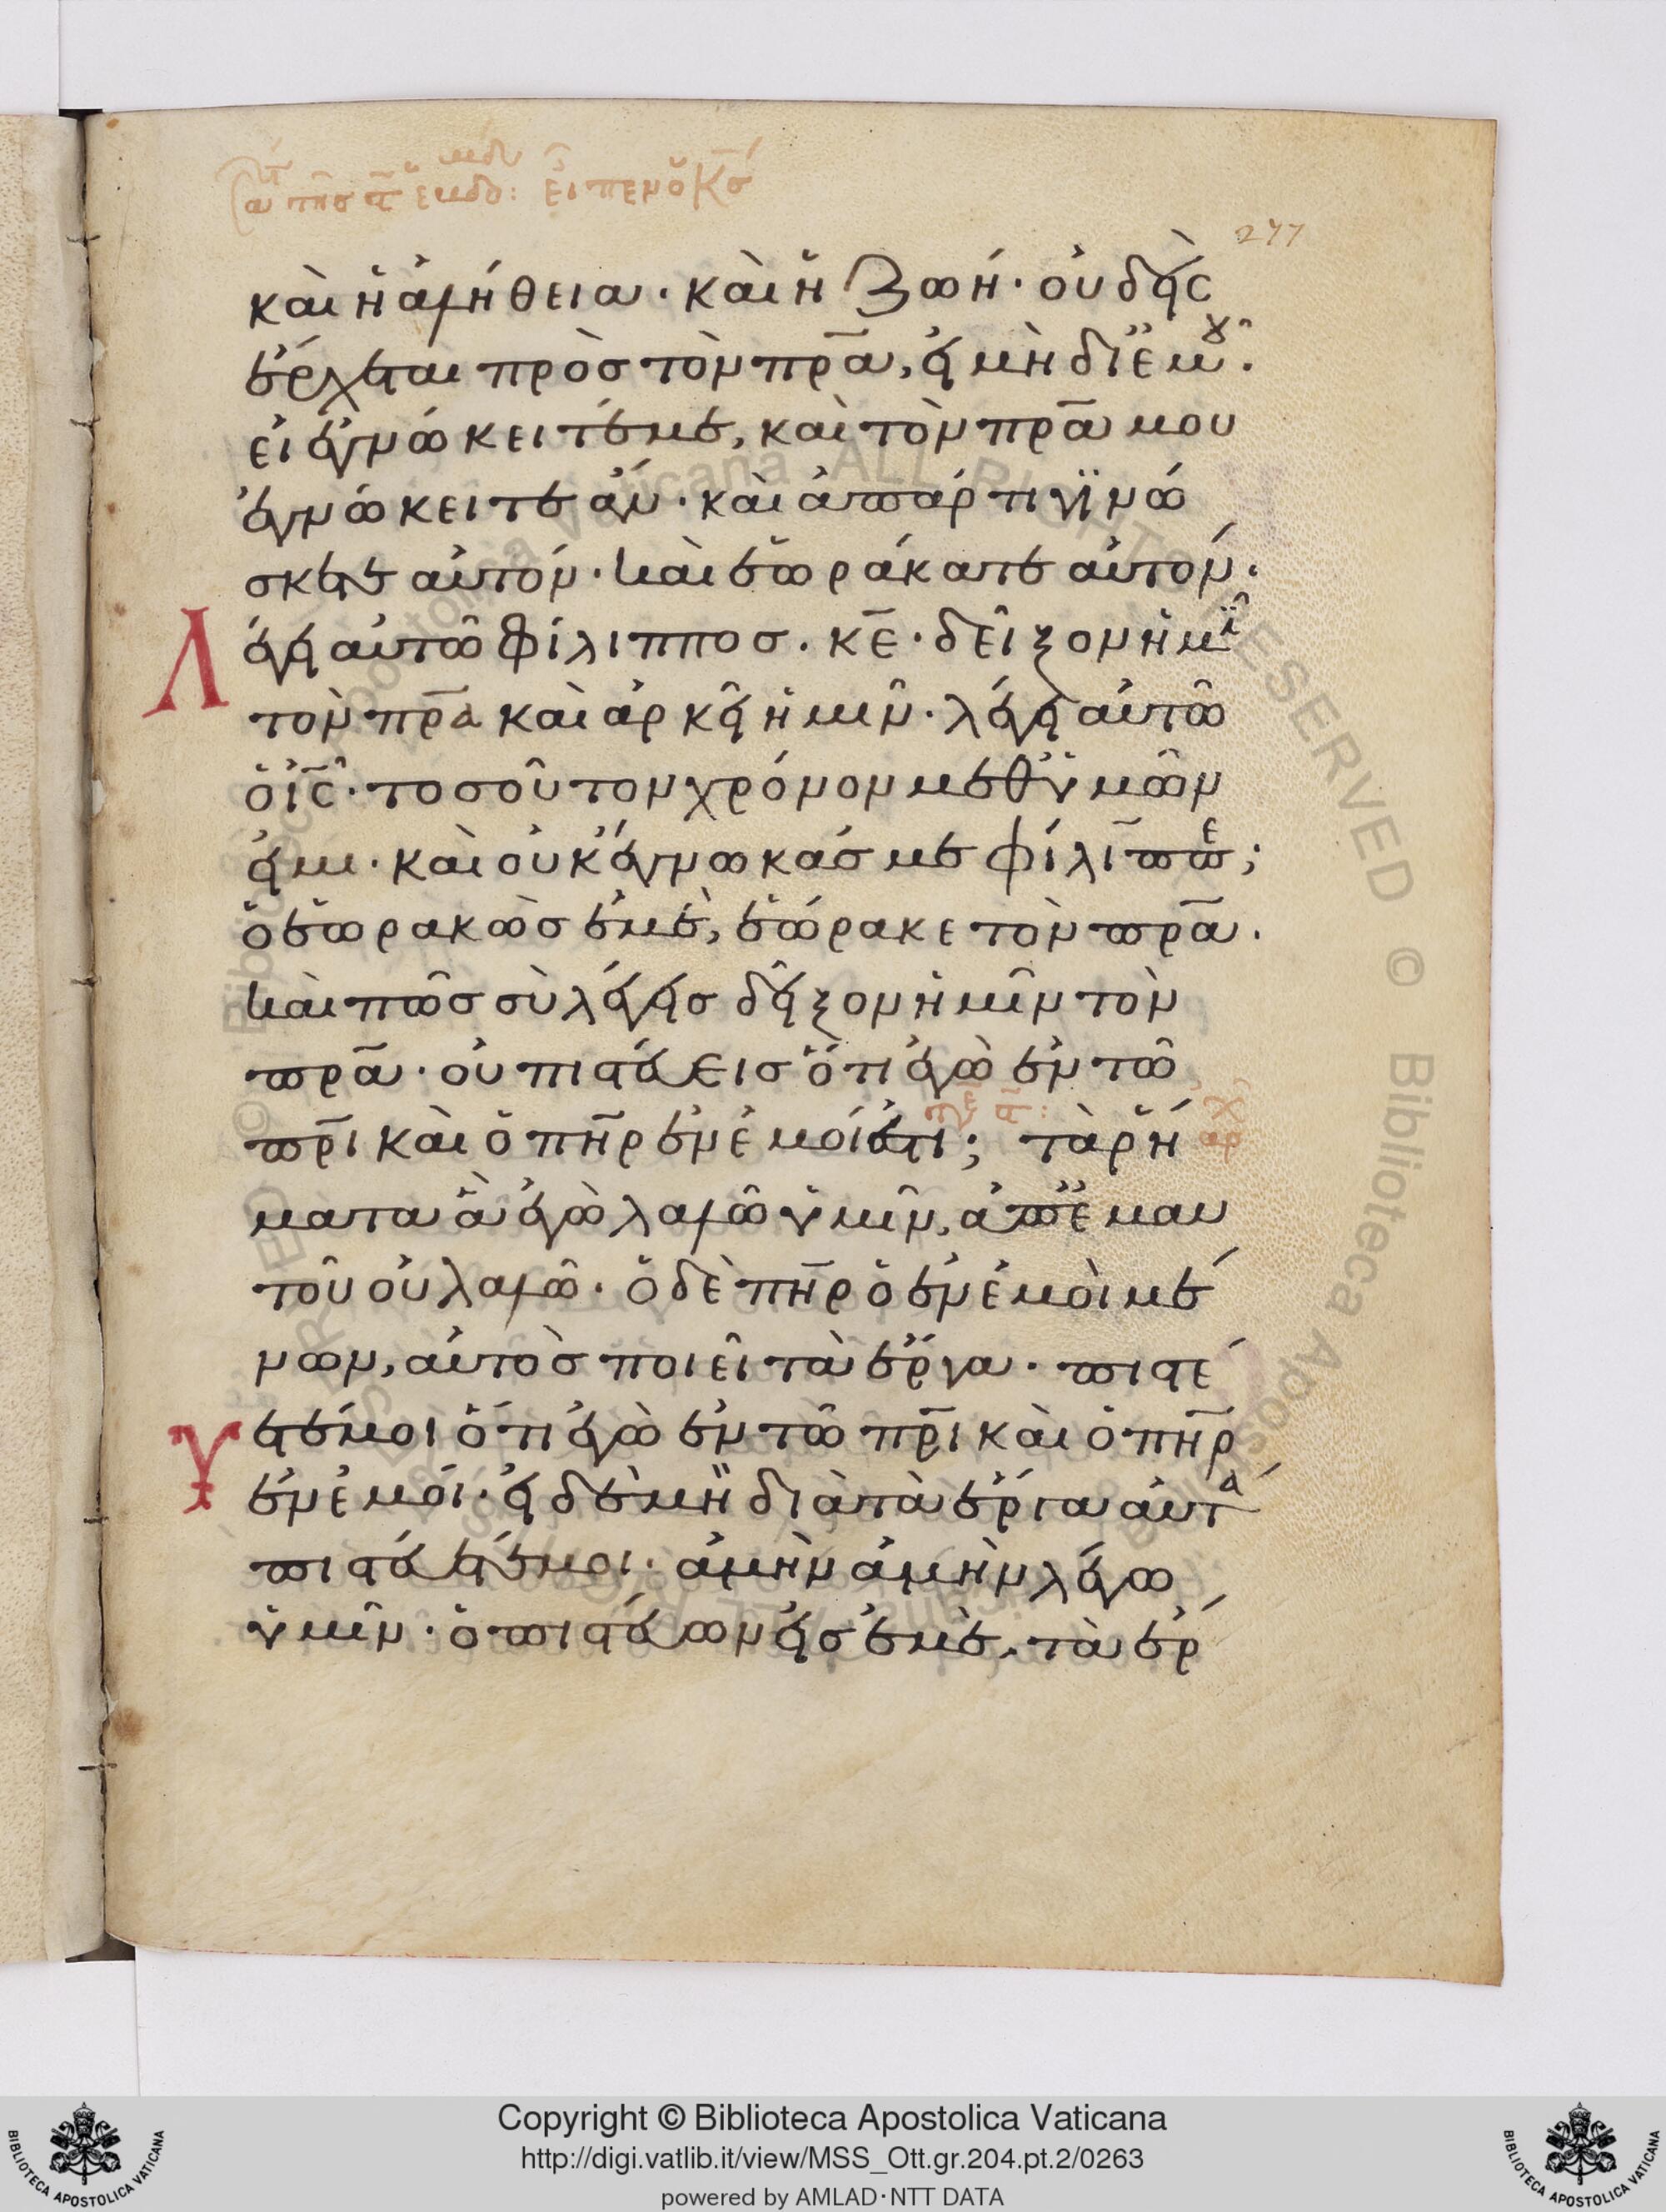 εἶπεν ὁ κς
277
καὶ ἡ ἀλήθεια· καὶ ἡ ζωή· οὐδεὶς
ἔρχεται πρὸς τὸν πρα, εἰ μὴ δι ἐμοῦ.
εἰ ἐγνώκειτέ με, καὶ τὸν πρα μου
ἐγνώκειτε ἄν· καὶ ἀπάρτι γϊνώ
σκετε αὐτόν· καὶ ἑωράκατε αὐτόν.
Λ
έγει αὐτῶ φίλιππος. κε· δεῖξον ἡμῖ
τὸν πρα καὶ ἀρκεῖ ἡμῖν· λέγει αὐτῶ
ὁ ις· τοσοῦτον χρόνον μεθ ὑμῶν
εἰμι· καὶ οὐκ ἔγνωκάς με φίλιππε;
ὁ ἑωρακὼς ἐμὲ, ἑώρακε τὸν πρα.
καὶ πῶς σὺ λέγεις δεῖξον ἡμῖν τὸν
πρα· οὐ πιστεύεις ὅτι ἐγὼ ἐν τῶ
πρι καὶ ὁ πηρ ἐν ἐμοί ἐστι; τὰ ῥή
ματα ἃ ἐγὼ λαλῶ ὑμῖν, ἀπ ἐμαυ
τοῦ οὐ λαλῶ· ὁ δὲ πηρ ὁ ἐν ἐμοὶ μέ
νων, αὐτὸς ποιεῖ τὰ ἔργα· πιστέ
υ
ετέ μοι ὅτι ἐγὼ ἐν τῶ πρι καὶ ὁ πηρ
ἐν ἐμοί· εἰ δὲ μὴ διὰ τὰ ἔργα αὐτὰ
πιστεύετέ μοι· ἀμὴν ἀμὴν λέγω
ὑμῖν· ὁ πιστεύων εἰς ἐμὲ, τὰ ἔρ
Copyright © Biblioteca Apostolica Vaticana
http://digi.vatlib.it/view/MSS_Ott.gr.204.pt.2/0263
powered by AMLAD·NTT DATA
BIBLIOTECA APOSTOLICA VATICANA
BIBLIOTECA APOSTOLICA VATICANA